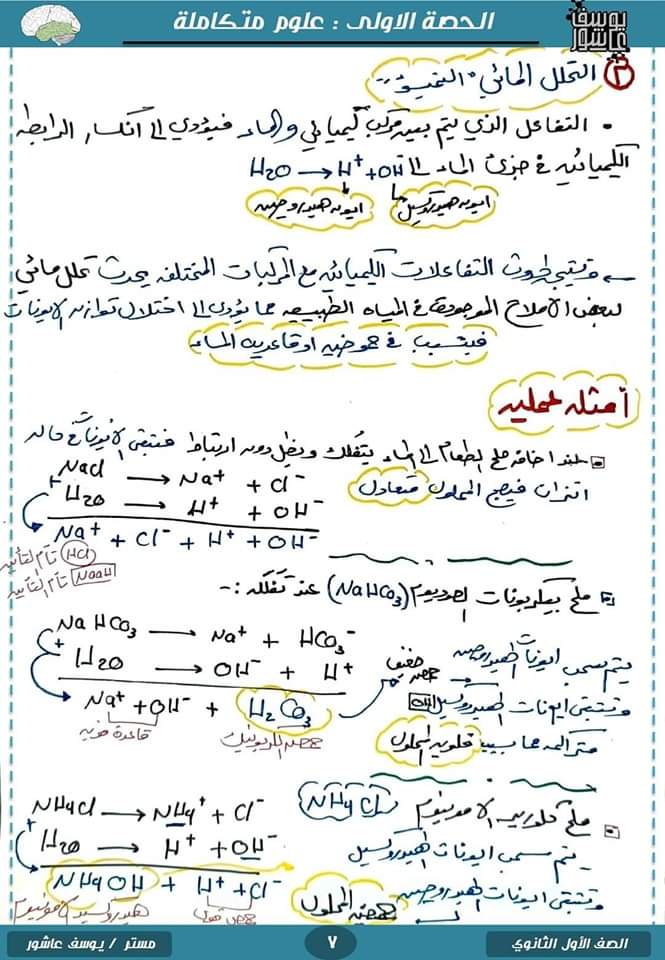 الحصة الاولى : علوم متكاملة
يوسف عاشور
٢ التحلل المائي " التميؤ "
• التفاعل الذي يتم بين مركب كيميائي والماء فيؤدي الى انكسار الرابطه
الكيميائيه في جزئ الماء الى H2O → H+ + OH-
ايون هيدروكسيل ايون هيدروجين
← ونتيجه حدوث التفاعلات الكيميائيه مع المركبات المختلفه يحدث تحلل مائي
لبعض الاملاح الموجوده في المياه الطبيعيه مما يؤدى الى اختلال توازن الايونات
فيتسبب في حموضيه او قاعديه الماء
أمثله عمليه
عند اضافه ملح الطعام الى الماء يتفكك ويظل دون ارتباط فتبقى الايونات في حاله
اتزان فيصبح المحلول متعادل
NaCl → Na+ + Cl-
+
H2O → H+ + OH-
Na+ + Cl- + H+ + OH-
HCl تام التأين
NaOH تام التأين
ملح بيكربونات الصوديوم (NaHCO3) عند تفككه :-
NaHCO3 → Na+ + HCO3-
+
H2O → OH- + H+
Na+ + OH- + H2CO3
قاعدة قويه حمض الكربونيك
حمض ضعيف
يتم سحب ايونات الهيدروجين
وتتبقى ايونات الهيدروكسيل OH
متراكمه مما يسبب قلويه المحلول
ملح كلوريد الامونيوم NH4Cl
NH4Cl → NH4+ + Cl-
+
H2O → H+ + OH-
NH4OH + H+ + Cl-
هيدروكسيد الامونيوم حمض قوى
يتم سحب ايونات الهيدروكسيل
وتتبقى ايونات الهيدروجين
حمضيه المحلول
الصف الأول الثانوي
٧
مستر / يوسف عاشور